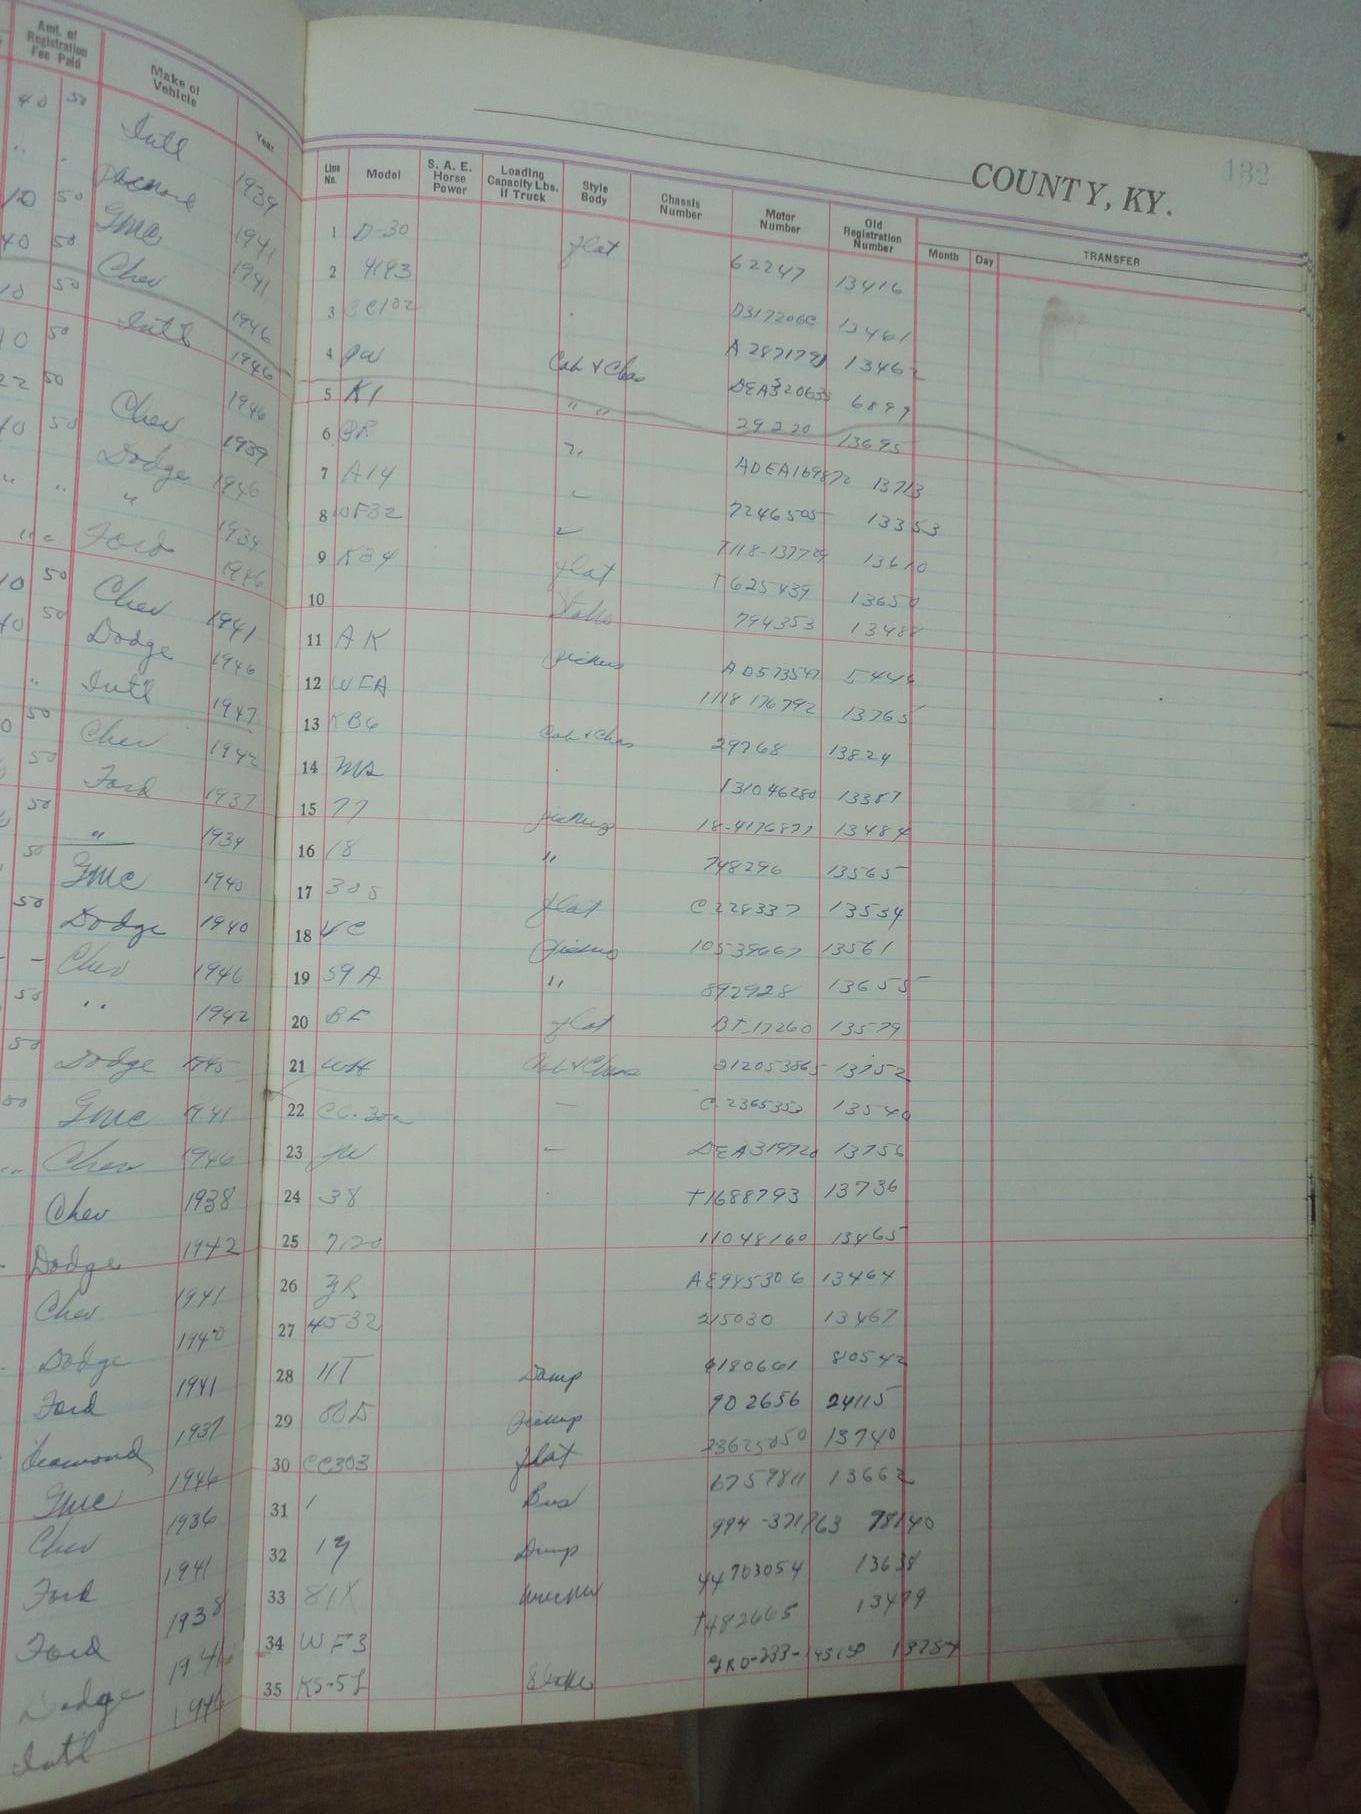 Amt. of Registration Fee Paid | Make of Vehicle | Year
40 50 Int'l 1939
" " 1941
10 50 GMC 1941
40 50 Chev 1946
10 50 Int'l 1946
10 50 Chev 1946
22 50 Dodge 1939
10 50 " 1946
" " Ford 1934
" " Chev 1946
10 50 Dodge 1941
40 50 Int'l 1946
" Chev 1947
50 Ford 1942
50 " 1937
50 GMC 1934
50 Dodge 1940
50 Chev 1940
- - " 1946
50 Dodge 1942
50 GMC 1945
50 Chev 1941
Chev 1946
Dodge 1938
Chev 1942
Dodge 1941
Ford 1940
Diamond 1941
GMC 1937
Chev 1946
Ford 1936
Ford 1941
Dodge 1938
Int'l
1946
132
COUNTY, KY.
Line No. | Model | S. A. E. Horse Power | Loading Capacity Lbs. if Truck | Style Body | Chassis Number | Motor Number | Old Registration Number | Month | Day | TRANSFER
1 D-30 flat 62247 13416
2 4193 D317206C 13461
3 CC102 A 2871791 13462
4 Cab & Chas DEA320633 6897
5 K1 " " 29220 13695
6 ADEA169872 13713
7 A14 7246505 13353
8 WF32 T118-137729 13610
9 K34 flat T625439 13650
10 794353 13488
11 AK pickup AD573547 5446
12 WFA 1118 176792 13765
13 KB6 Cab & Chas 29768 13824
14 MS 131046280 13387
15 77 pickup 18-4176877 13484
16 18 " 748296 13565
17 305 flat C228337 13554
18 VC pickup 10539667 13561
19 59A " 892928 13655
20 BF flat BT-17260 13579
21 WH Cab & Chas 212053865 13752
22 CC-302 - C 2365353 13540
23 JW - DEA319720 13756
24 38 T1688793 13736
25 7120 11048160 13465
26 AE985306 13464
27 4532 215030 13467
28 11T Dump 4180661 80542
29 pickup 902656 24115
30 CC303 flat 23625050 13740
31 1 Bus 6759811 13662
32 1y Dump 994-371763 78140
33 81X wrecker 44703054 13638
34 WF3 T482665 13479
35 KS-5L Stake GRD-233-145150 13754